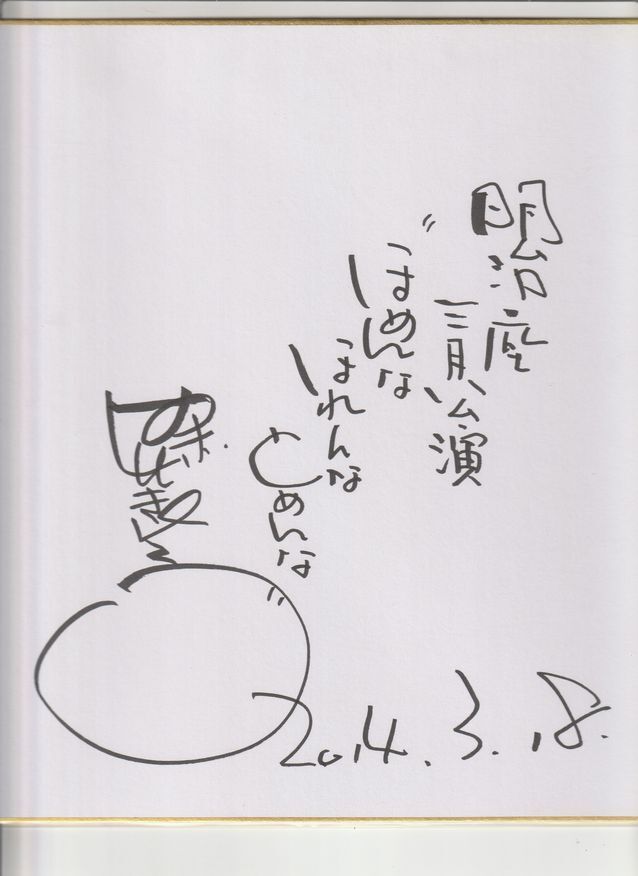 明治座
三月公演
〃ほめんな
ほれんな
とめんな〃
2014.3.18.